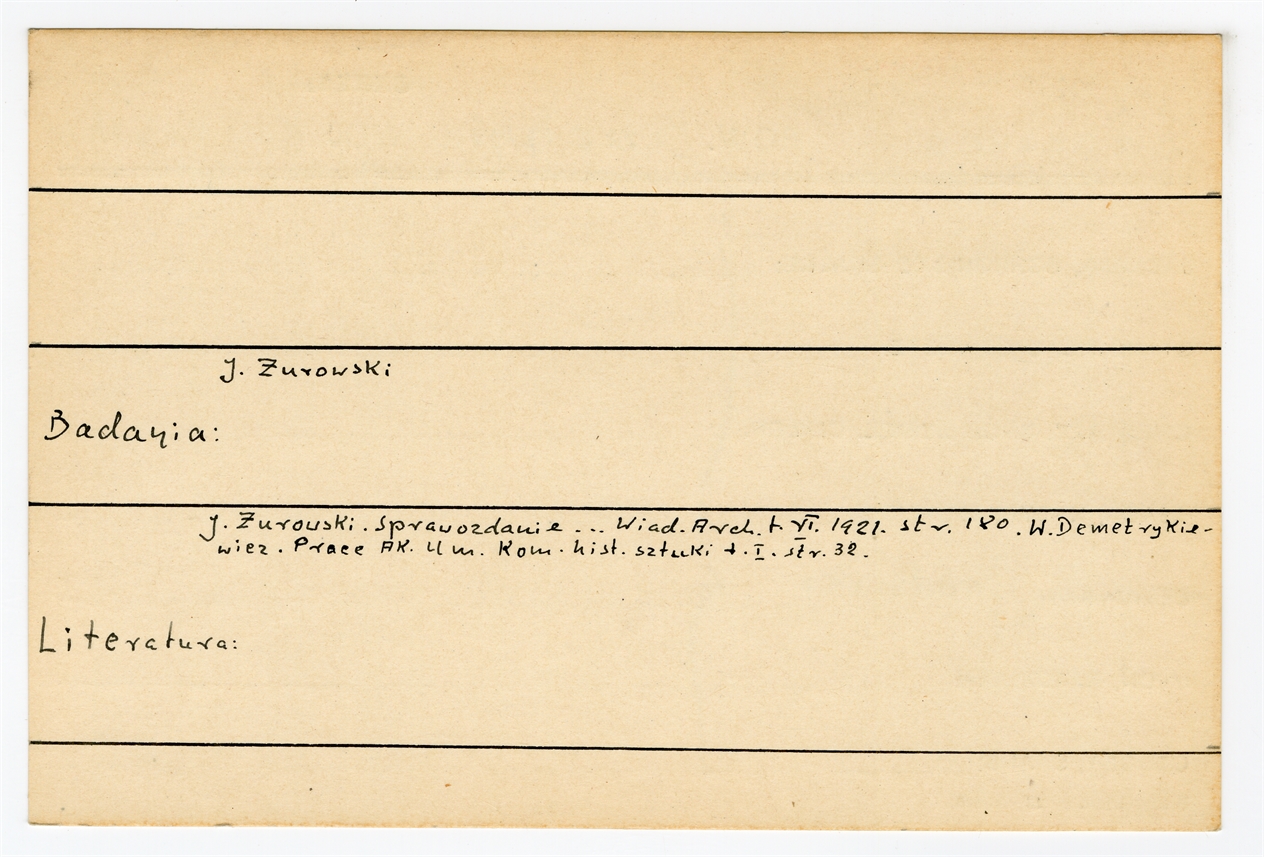 J. Żurowski
Badania:
J. Żurowski. Sprawozdanie ... Wiad. Arch. t. VI. 1921. str. 180. W. Demetrykie-
wicz. Prace Ak. Um. Kom. hist. sztuki t. I. str. 32.
Literatura: